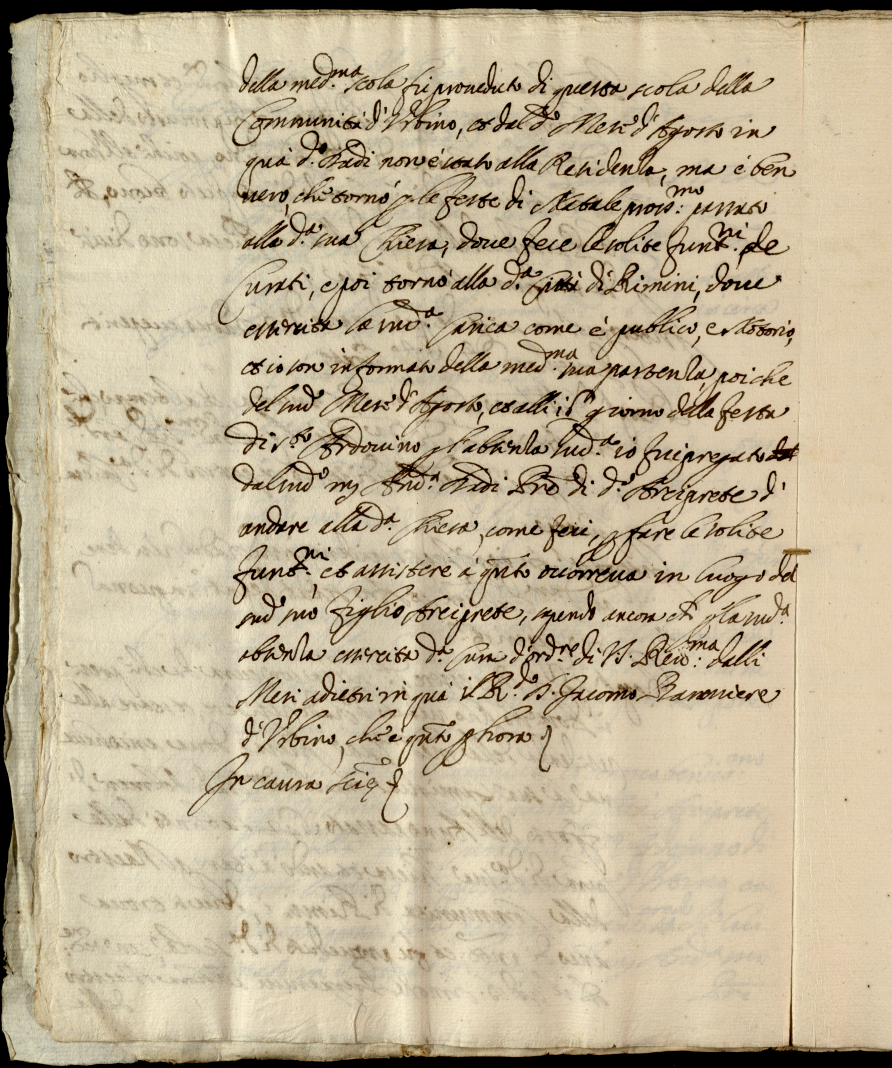 della med.ma scola fu proveduto di questa scola della
Communità d'Urbino, et dal d.o Mese d'Agosto in
quà d.o Fadi non è stato alla Residenza, ma è ben
vero, che tornò p le feste di Natale pross.mo passato
alla d.a sua Chiesa, dove fece le solite funt.ni de
Curati, e poi tornò alla d.a Città di Rimini, dove
essercita la sud.a Carica come è publico, e Notorio,
et io son informato della med.ma sua partenza, poiche
del sud.o Mese d'Agosto, et alli 15 giorno della festa
di s.to Ardovino p l'absenza sud.a io fui pregato
dal sud.o And.a Fadi Pre di d.o Arciprete d'
andare alla d.a Chiesa, come feci, p fare le solite
funt.ni, et assistere à qnto occorreva in luogo del
sud.o suo figlio Arciprete, sapendo ancora ch' p la sud.a
absenza essercita d.a Cura d'ord.re di V. Rev.ma dalli
Mesi adietri in quà il R.do D. Jacomo
d'Urbino, che è qnto p hora
In causa sci.e